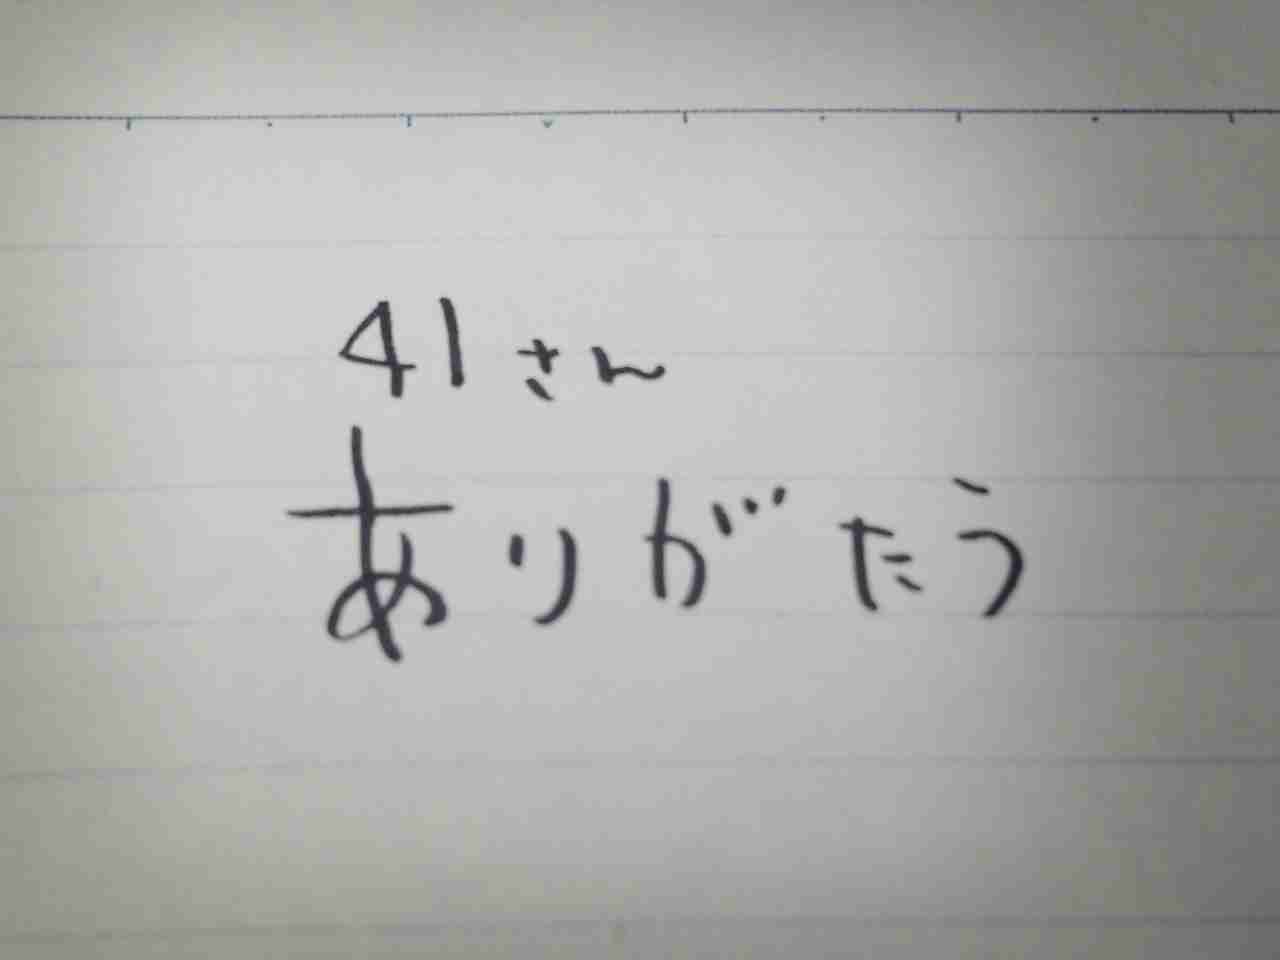 41さん
ありがたう